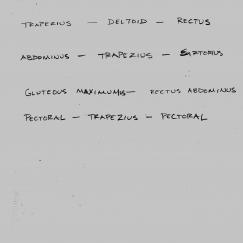 TRAPEZIUS — DELTOID — RECTUS
ABDOMINUS — TRAPEZIUS — SARTORIUS
GLUTEOUS MAXIMUMS — RECTUS ABDOMINUS
PECTORAL — TRAPEZIUS — PECTORAL